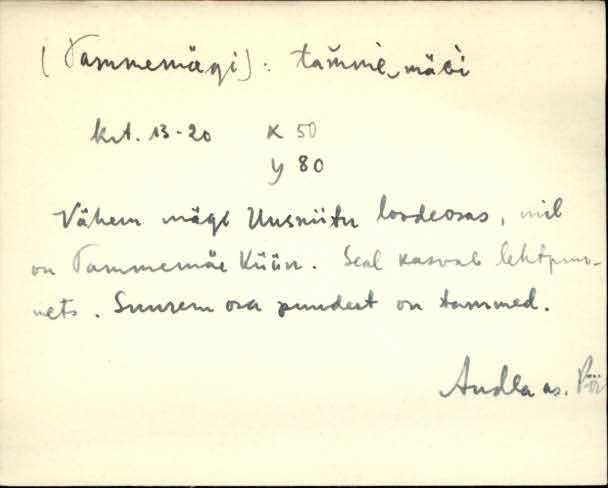 (Tammemägi): tam̆mè‿mäɢì
krt. 13-20 x 50
y 80
Vähem mägi Uusniidu loodeosas, mil
on Tammemäe Küün. Seal kasvab lehtpuu-
mets. Suurem osa puudest on tammed.
Andla as. Pöi